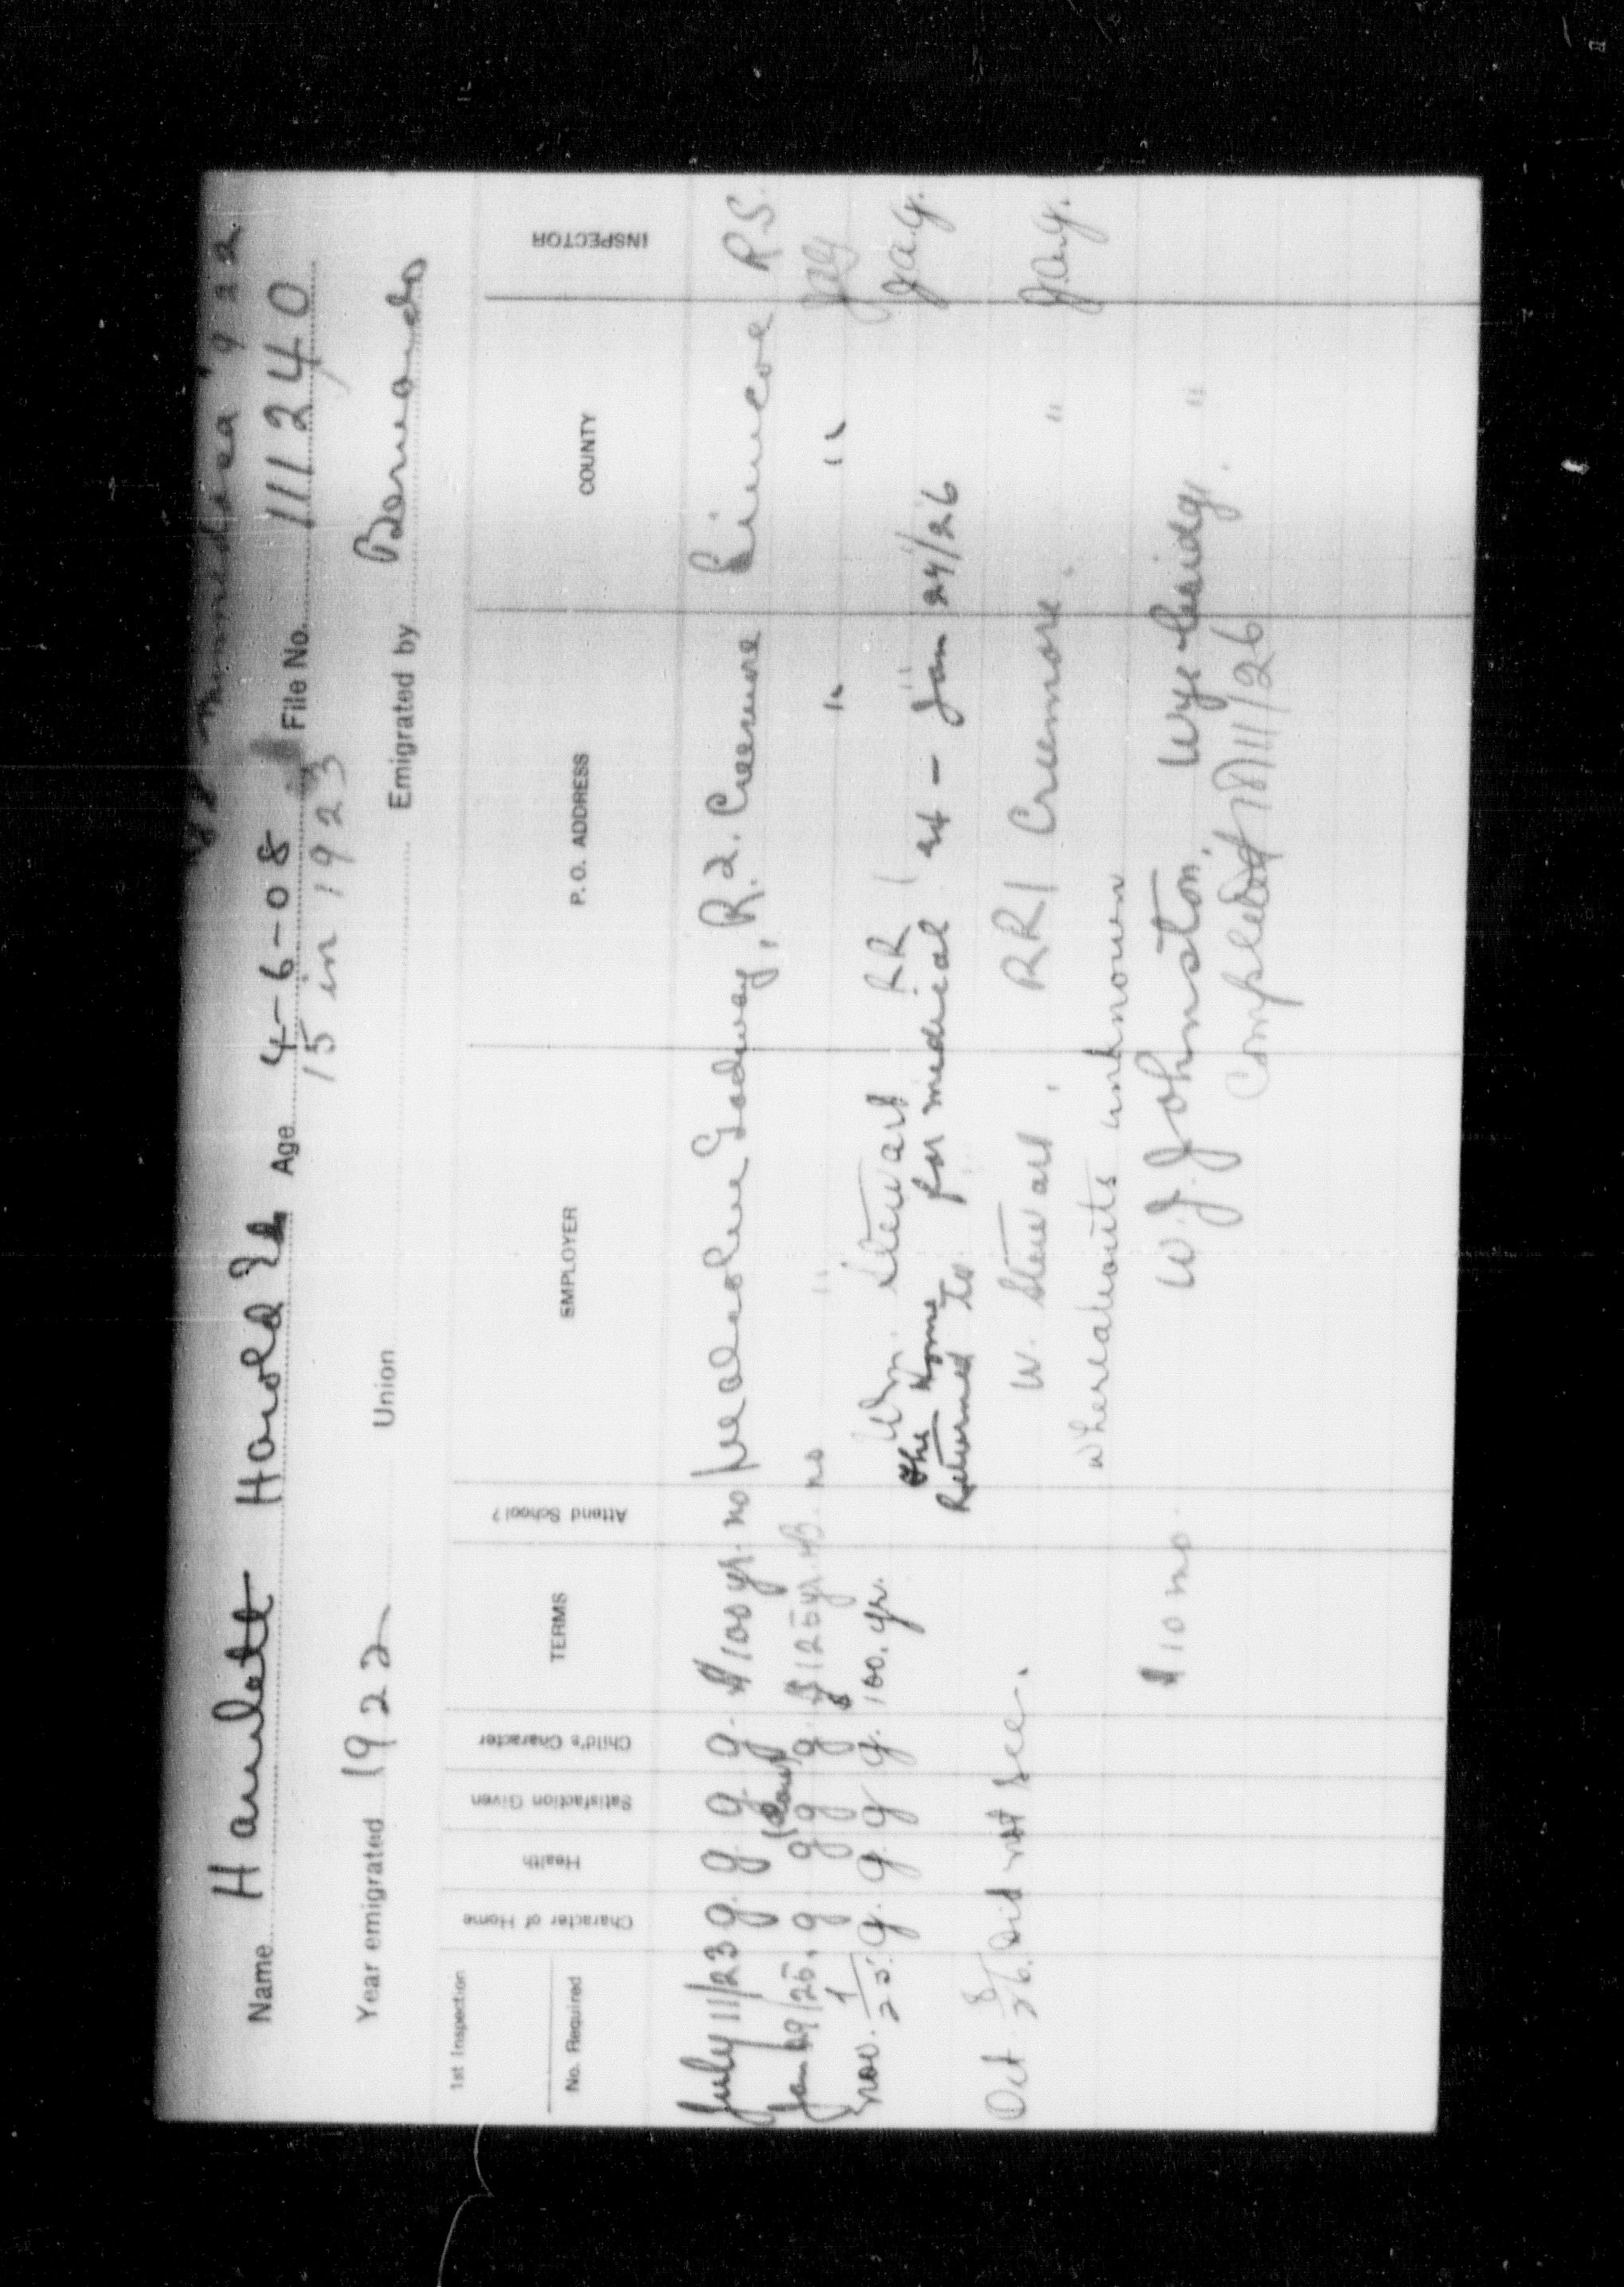 1922
Name Hamlett Harold Ed Age 4-6-08 File No. 111240
15 in 1923
Year emigrated 1922 Union Emigrated by Barnardo
1st Inspection
No. Required Character of Home Health Satisfaction Given Child's Character TERMS Attend School? EMPLOYER P. O. ADDRESS COUNTY INSPECTOR
July 11/23 g. g. g. g. $100 yr. no Malcolm Gadway, R.2. Creemore Simcoe R.S.
Jan 29/25. g g g g. $125 yr. no " " " JAG
Nov. 1/25. g. g. g g. $100. yr. Wm. Stewart RR 1 " JAG.
the Home
Returned to for medical at - Jan 24/26
Oct 8/26. Did not see. W. Stewart, RR 1 Creemore. " JAG.
whereabouts unknown
$10 mo. W. J. Johnston, Wyebridge. "
Completed 11/26